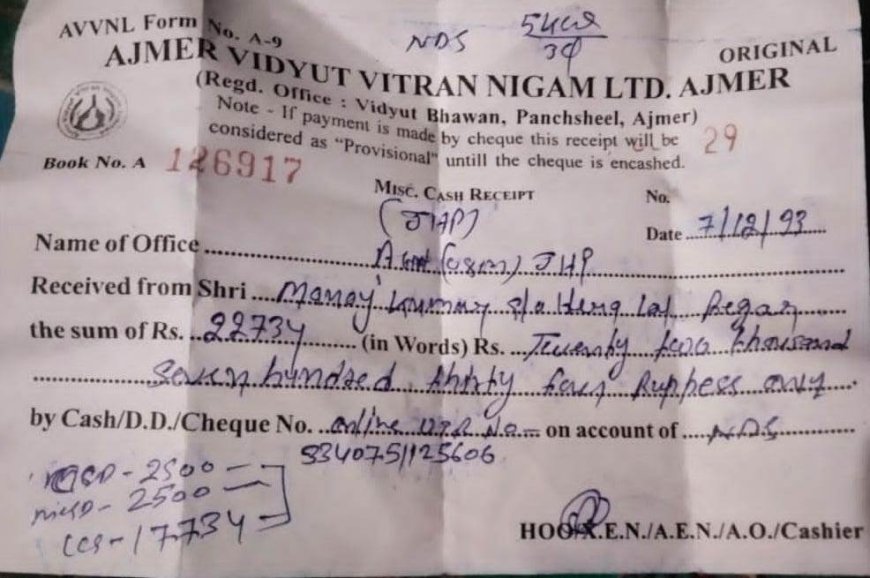 AVVNL Form No. A-9
NDS
ORIGINAL
AJMER VIDYUT VITRAN NIGAM LTD. AJMER
(Regd. Office : Vidyut Bhawan, Panchsheel, Ajmer)
Note - If payment is made by cheque this receipt will be
considered as "Provisional" untill the cheque is encashed.
29
Book No. A 126917
MISC. CASH RECEIPT
No.
(JHP)
Date 7/12/93
Name of Office (O&M) JHP
Received from Shri Manoj Kumar s/o Lal Regar
the sum of Rs. 22734 (in Words) Rs. Twenty two thousand
Seven hundred thirty four Ruppess only
by Cash/D.D./Cheque No. online UTR No- on account of NDS
5340751125606
- 2500
- 2500
CCS - 17734
HOO/X.E.N./A.E.N./A.O./Cashier